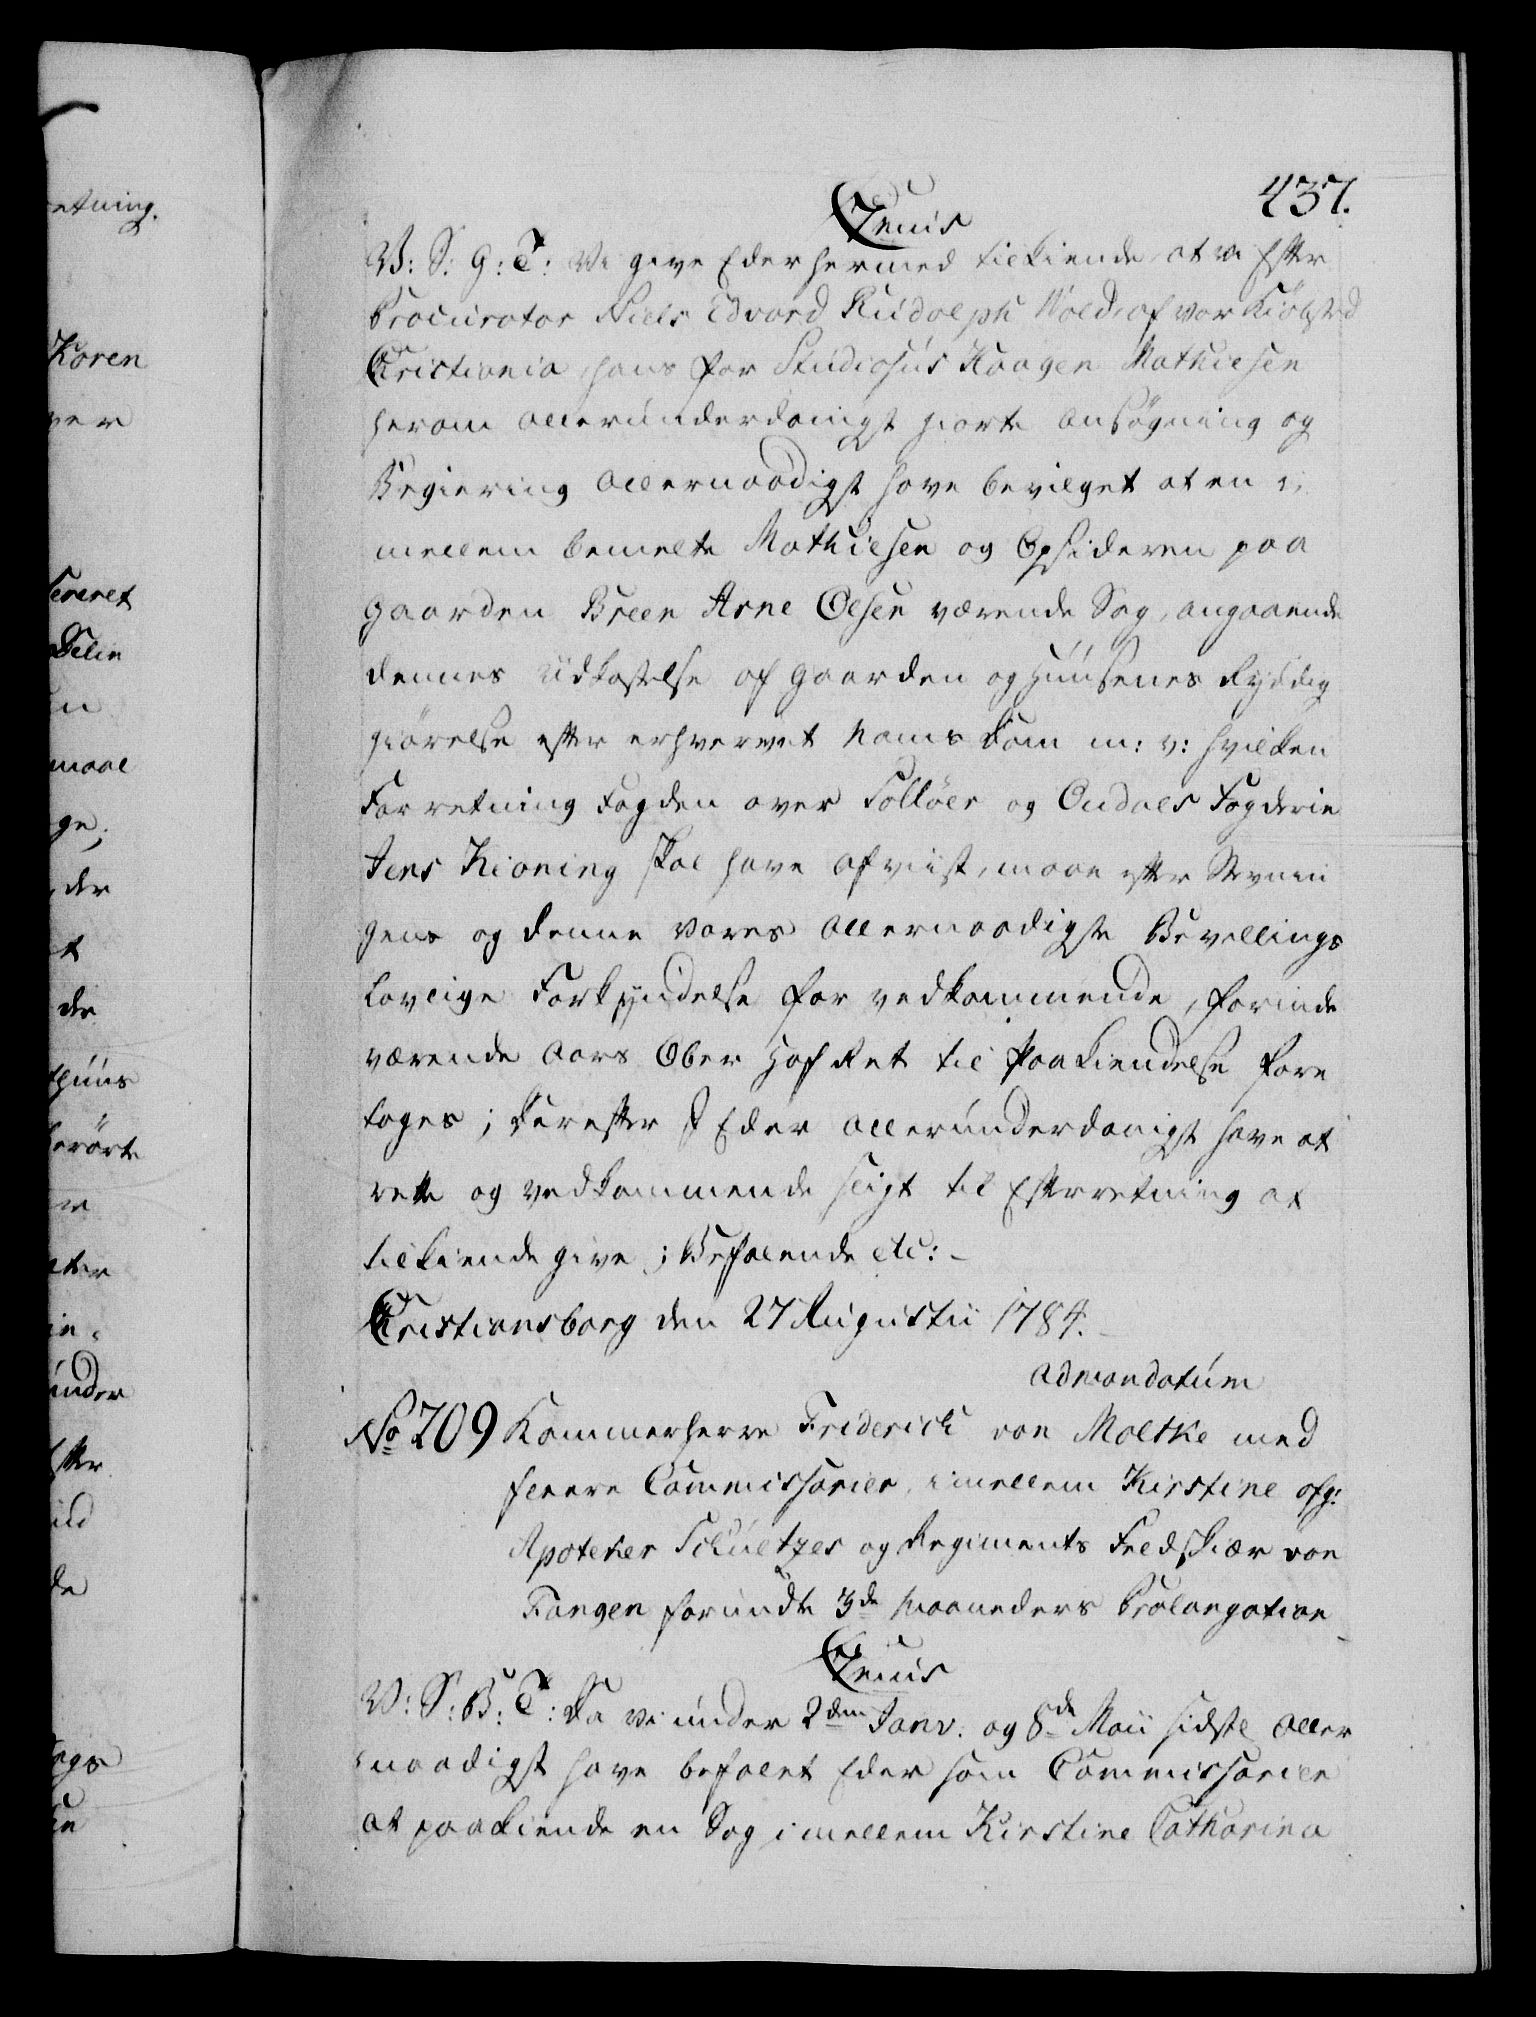 437.
C 7enis
V: S: G: T: Vi give Eder hermed tilkiende, at vi Efter
Procurator Niels Edvard Rudolph Vold, af vor Kiøbsted
Christiania, hans for Studiosus Haagen Mathiesen
herom allerunderdanigst giorte Ansøgning og
Begiering allernaadigst have bevilget at en i,
mellem bemelte Mathiesen og Opsideren paa
Gaarden Breen Arne Olsen værende Sag, angaaende
dennes Udkastelse af Gaarden og Huusenes Ryddig
giørelse efter erhvervet Nams Dom m: v: hvilken
Forretning Fogden over Solløer og Oudals Fogderie
Jens Kioning skal have afviist, maae efter Stevnin
gens og denne vores allernaadigste Bevillings
lovlige Forkyndelse for vedkommende, for inde
værende Aars Ober Hof Ret til Paakiendelse fore
tages; Derefter I Eder allerunderdanigst have at
rette og vedkommende sligt til Efterretning at
tilkiende give; Befalende etc: -
Christiansborg den 27 Augustii 1784. -
ad mandatum
No 209 Kammerherre Friderich von Moltke med
fleere Commissarier, imellem Kirstine afg:
Apoteker Schultzes og Regiments Feldskiær von
Fangen forundte 3de Maaneders Prolongation -
C 7enis
V: S: B: T: Da vi under 2den Janv. og 8de Maii sidstl. aller
naadigst have befalet Eder som Commissarier
at paakiende en Sag imellem Kirstine Catharina
etning.
Koren
ver
maal
ge,
der
t
de
huus
berørte
under
de